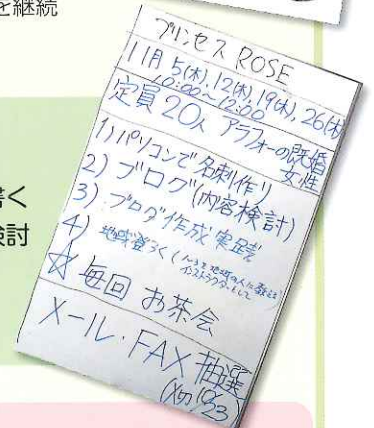 を継続
プリンセス ROSE
11月 5(木), 12(木), 19(木), 26(木)
10:00~12:00
定員20人 アラフォーの既婚
女性
1) パソコンで名刺作り
2) ブログ(内容検討)
3) ブログ作成実践
4)
☆ 毎回 お茶会
メール・FAX 抽選
(〆切 10/23)
書く
検討